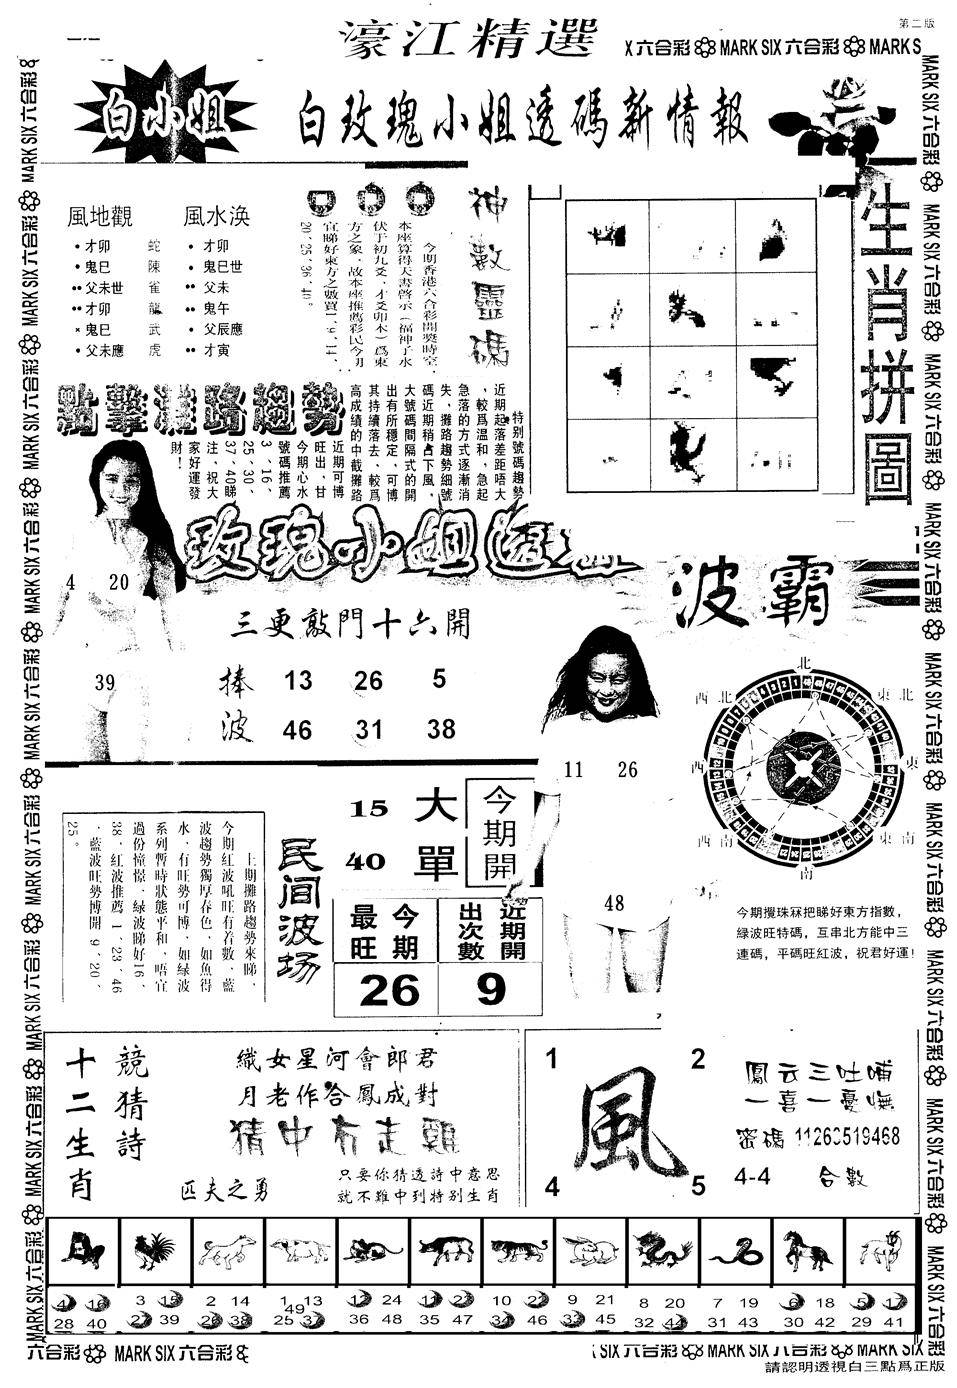 第二版
濠江精選
六合彩 MARK SIX 六合彩 MARK S
白小姐
白玫瑰小姐透碼新情報
風地觀
風水渙
•才卯 蛇
•鬼巳 陳
••父未世 雀
••才卯 龍
×鬼巳 武
•父未應 虎
•才卯
•鬼巳世
••父未
••鬼午
•父辰應
••才寅
神數靈碼
今期香港六合彩開獎時空
本座算得天書啓示(福神子水
伏于初九爻,才爻卯木)爲東
方之象,故本座推薦彩民今期
宜睇好東方之數買1、9、14、
20、25、36、40。
生肖拼圖
點擊灘路趨勢
特别號碼趨勢
近期起落差距唔大
,較爲溫和,急起
急落的方式逐漸消
失,攤路趨勢細號
碼近期稍占下風,
大號碼間隔式的開
出有所穩定,可博
其持續落去,較爲
高成績的中截攤路
近期可博
旺出,甘
今期心水
號碼推薦
3、16、
25、30、
37、40睇
注,祝大
家好運發
財!
玫瑰小姐透
4 20
39
三更敲門十六開
捧波
13 26 5
46 31 38
波霸
11 26
48
北
東北
東
東南
南
西南
西
西北
今期攪珠冧把睇好東方指數,
綠波旺特碼,互串北方能中三
連碼,平碼旺紅波,祝君好運!
上期攤路趨勢來睇,
今期紅波吼旺有着數,藍
波趨勢獨厚春色,如魚得
水,有旺勢可博,如綠波
系列暫時狀態平和,唔宜
過份憧憬,綠波睇好16、
38,紅波推薦1、23、46
,藍波旺勢博開9、20、
25。
民间波场
15 大
40 單
今期開
最旺 今期
26
出次數 近期開
9
十二生肖
競猜詩
織女星河會郎君
月老作合鳳成對
猜中有走雞
匹夫之勇
只要你猜透詩中意思
就不難中到特别生肖
1 2
風
4 5
鳳云三吐哺
一喜一憂嘸
密碼
4-4 合數
4 16
28 40
3 15
27 39
2 14
26 38
1 13
49
25 37
12 24
36 48
11 23
35 47
10 22
34 46
9 21
33 45
8 20
32 44
7 19
31 43
6 18
30 42
5 17
29 41
六合彩 MARK SIX 六合彩
SIX 六合彩 MARK SIX 六合彩 MARK SIX 六合彩
請認明透視白三點爲正版